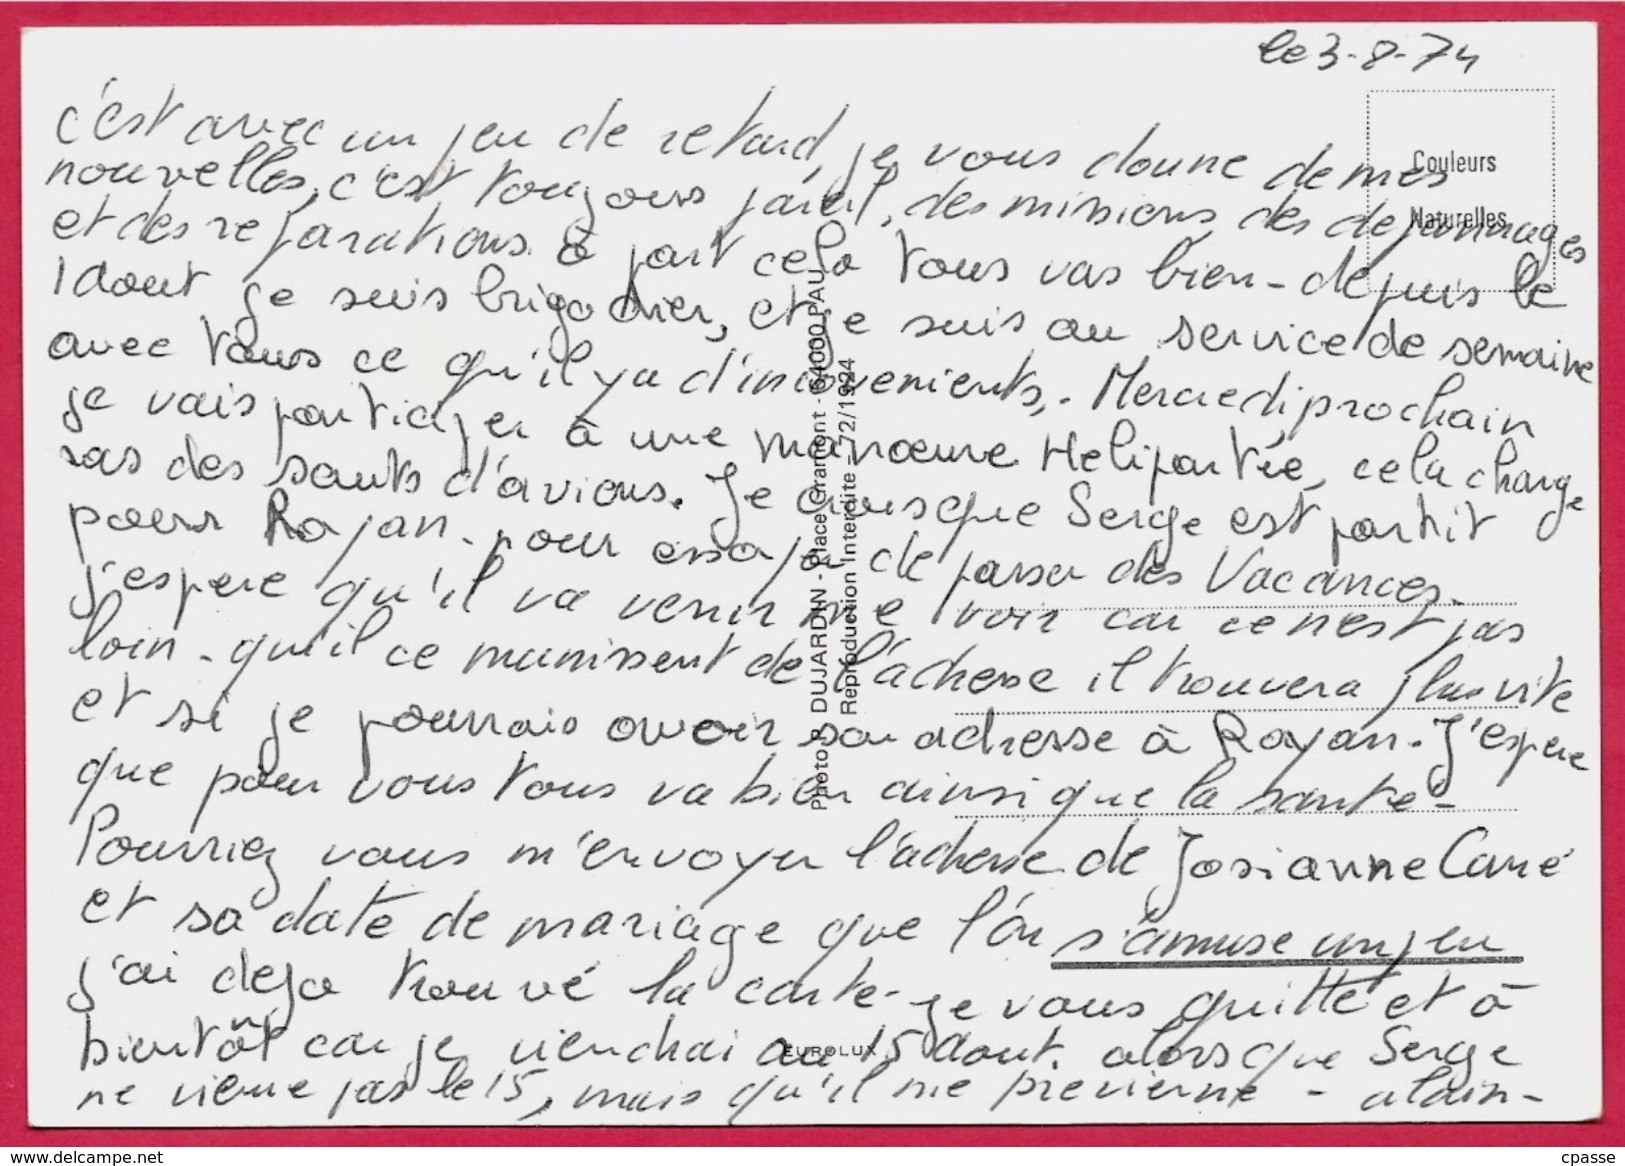 le 3-8-74
Couleurs
Naturelles
c'est avec un peu de retard, je vous donne de mes
nouvelles, c'est toujours pareil, des missions, des depannages
et des reparations. à part cela tous vas bien - depuis le
1 dout je suis brigadier, et je suis au service de semaine
avec tous ce qu'il y a d'inconvenients. - Mercredi prochain
je vais participer à une manoeuvre Heliportée, cela change
ras des sauts d'avions. Je crois que Serge est partit
pour Royan. pour essayer de passer des Vacances.
j'espere qu'il va venir me voir car ce n'est pas
loin - qu'il ce munissent de l'adresse il trouvera plus vite
et si je pourrais avoir son adresse à Royan. J'espere
que pour vous tous va bien ainsi que la sante -
Pourriez vous m'envoyer l'adresse de Josianne Carré
et sa date de mariage que l'on s'amuse un peu
j'ai deja trouvé la carte - je vous quitte et à
bientôt car je viendrai au 15 dout. alors que Serge
ne vienne pas le 15, mais qu'il me previenne - alain -
Photo P. DUJARDIN - Place Gramont - 64000 PAU
Reproduction Interdite - 72/1924
EUROLUX
www.delcampe.net
cpasse